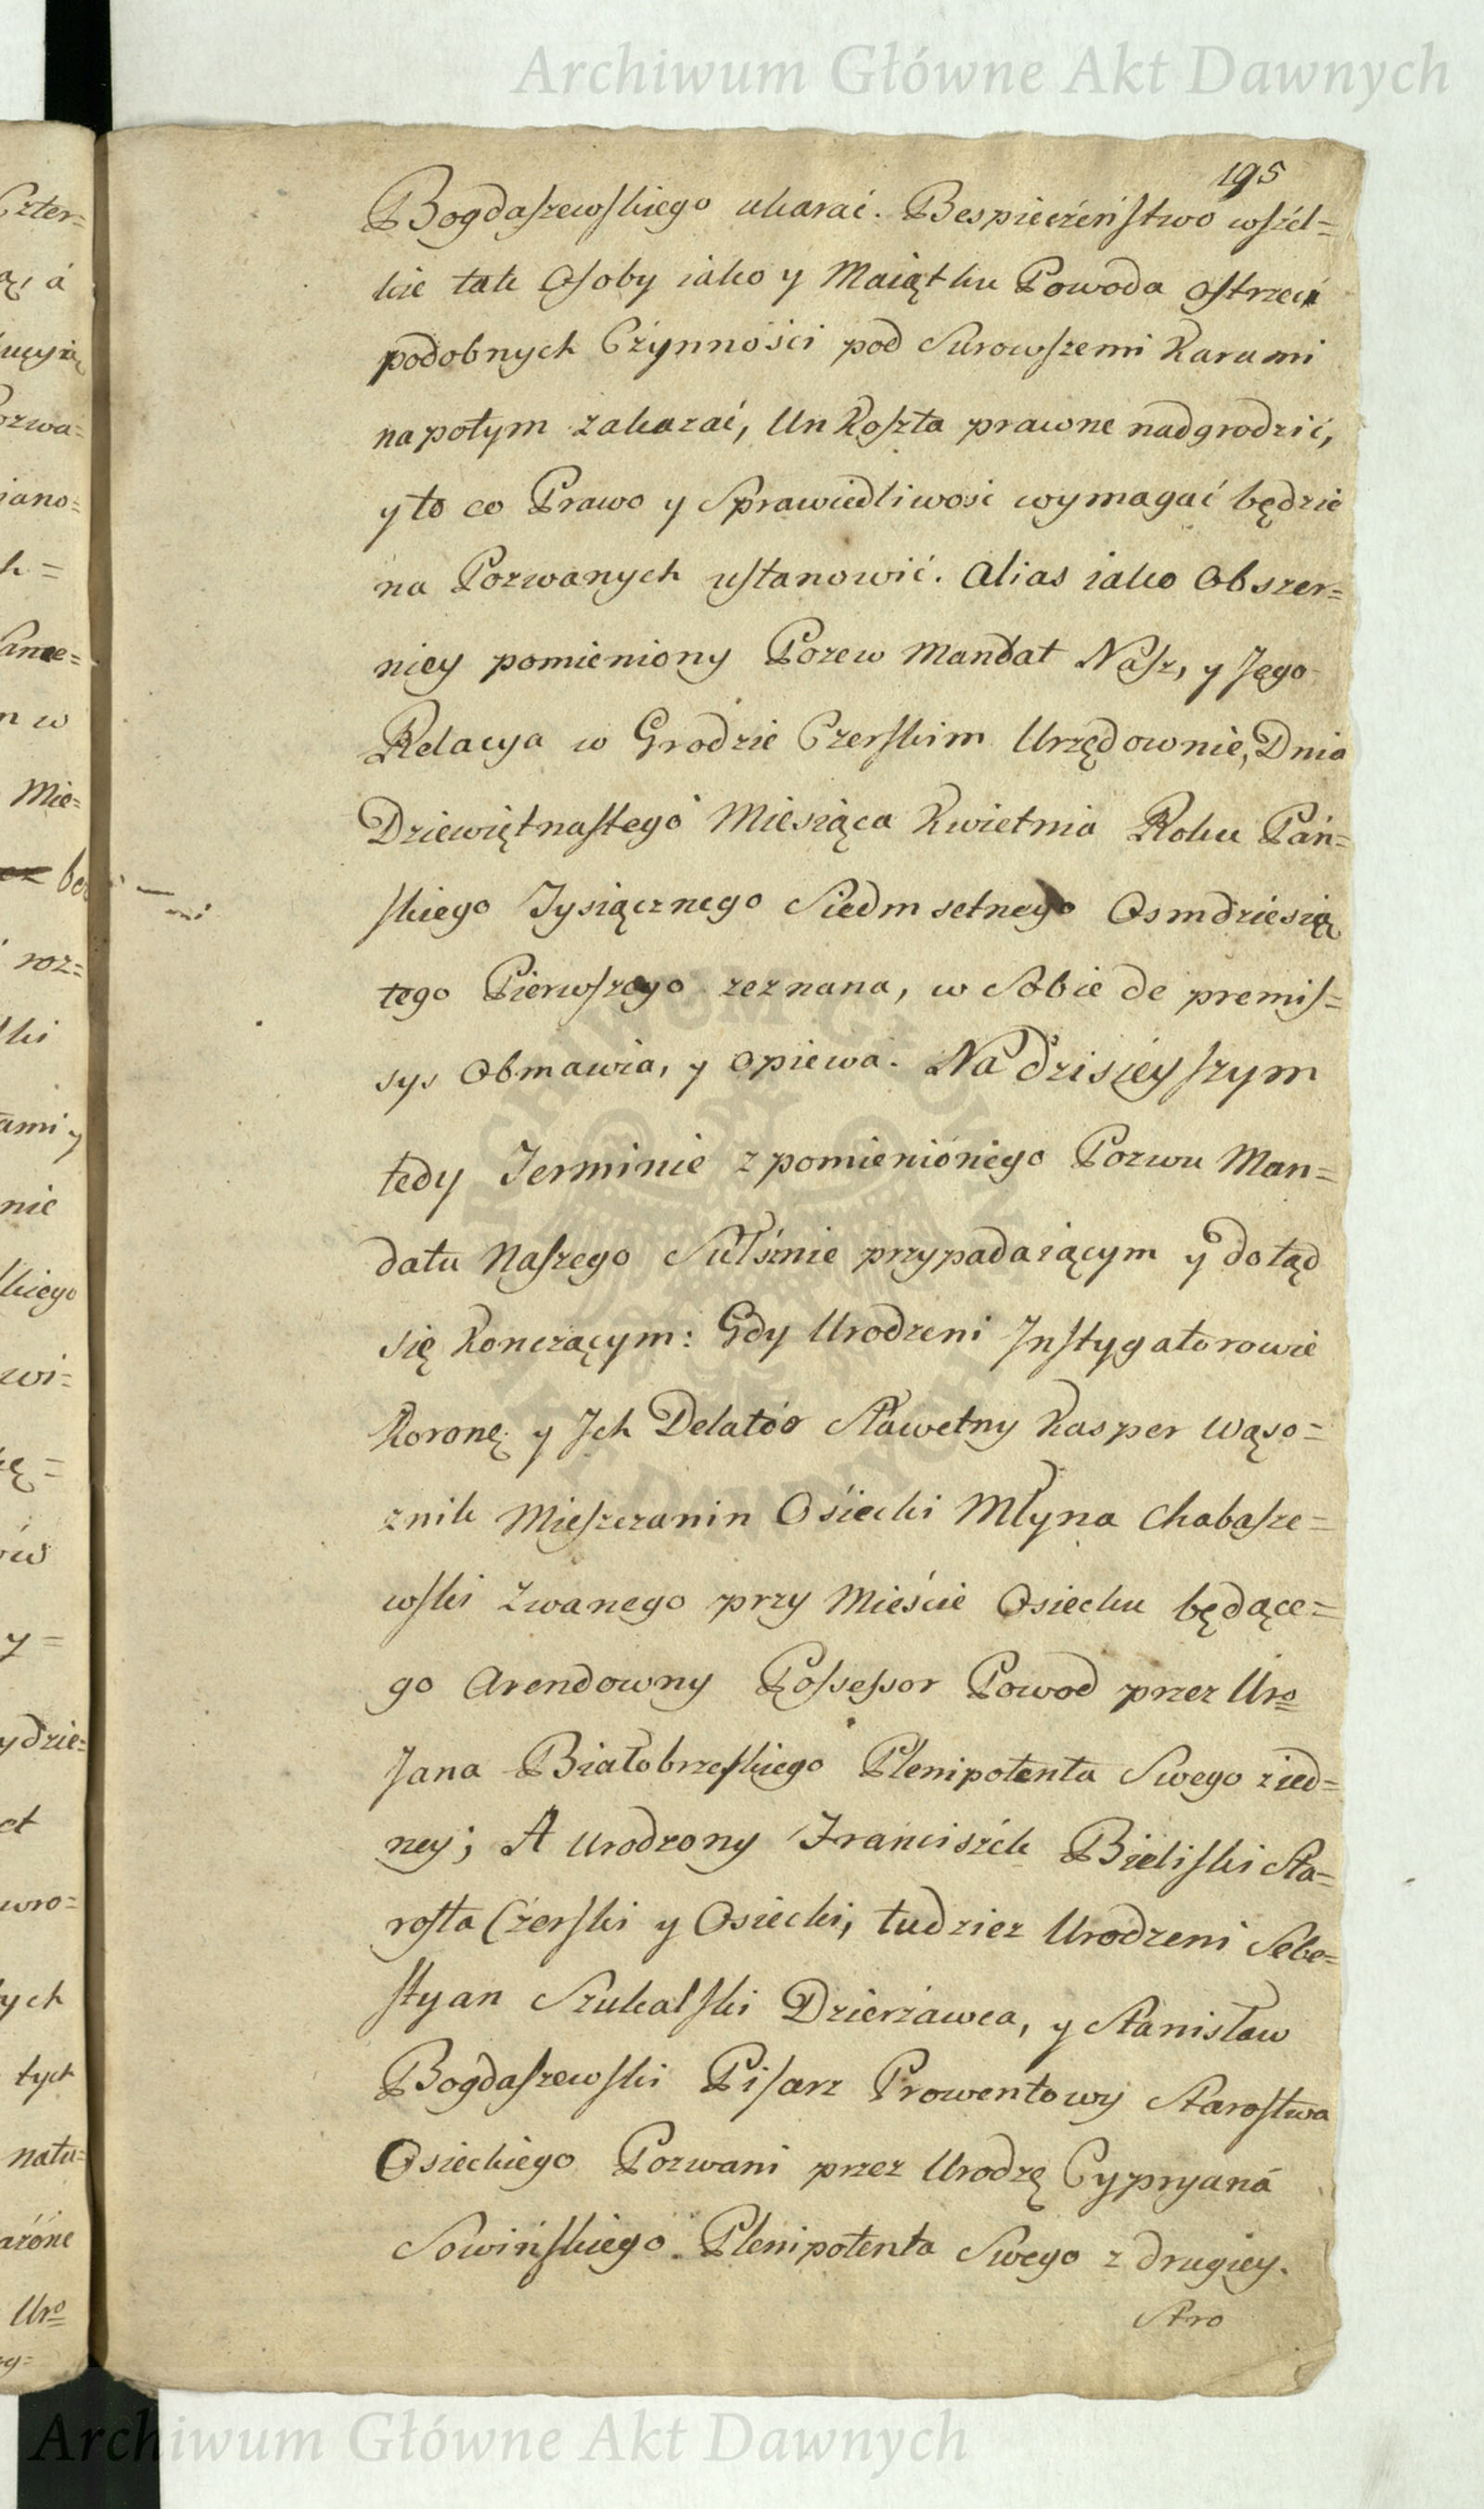 Archiwum Główne Akt Dawnych
195
Bogdaszewskiego ukarać. Bespieczeństwo wszel=
kie tak Osoby iako y Maiątku Powoda ostrzec
podobnych Czynności pod Surowszemi Karami
napotym zakazać, Unkoszta prawne nadgrodzić,
y to co Prawo y Sprawiedliwość wymagać będzie
na Pozwanych ustanowić. Alias iako Obszer=
niey pomieniony Pozew Mandat Nasz, y Jego
Relacya w Grodzie Czerskim Urzędownie, Dnia
Dziewiętnastego Miesiąca Kwietnia Roku Pań=
skiego Tysiącznego Siedmsetnego Osmdziesią
tego Pierwszego zeznana, w Sobie de premis=
sys Obmawia, y opiewa. Na dzisieyszym
tedy Terminie z pomienionego Pozwu Man=
datu Naszego Sułsznie przypadaiącym y dotąd
się Konczącym: Gdy Urodzeni Instygatorowie
Koronę. y Ich Delator Sławetny Kasper Wąso=
znik Mieszczanin Osiecki Młyna Chabasze=
wski Zwanego przy Mieście Osiecku będące=
go Arendowny Possessor Powod przez Uro
Jana Białobrzeskiego Plenipotenta Swego z ied=
ney; A Urodzony Franciszek Bieliski Sta=
rosta Czerski y Osiecki, tudziez Urodzeni Seba=
styan Szukalski Dzierzawca, y Stanisław
Bogdaszewski Pisarz Prowentowy Starostwa
Osieckiego Pozwani przez Urodzę Cypryana
Sowińskiego Plenipotenta Swego z drugiey.
Stro
Archiwum Główne Akt Dawnych